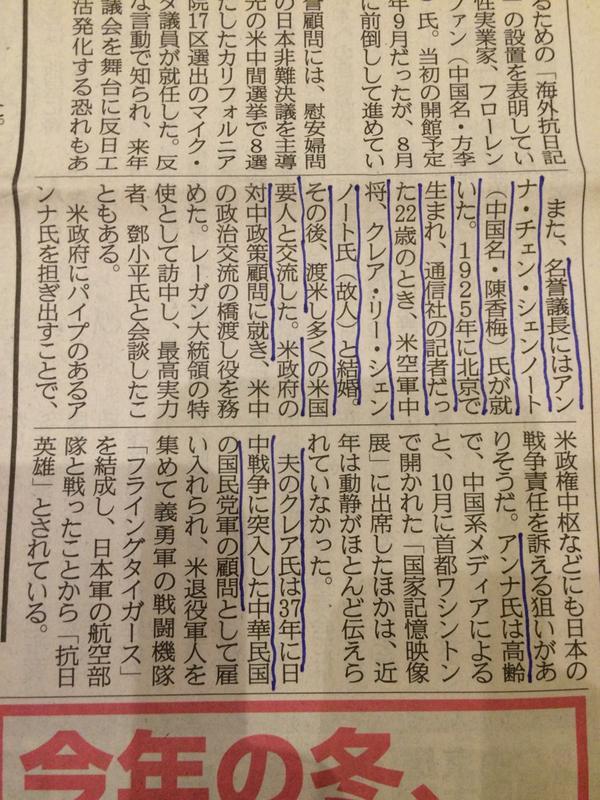 るための「海外抗日記
」の設置を表明してい
性実業家、フローレン
ファン（中国名・方李
）氏。当初の開館予定
年9月だったが、8月
に前倒しして進めてい
誉顧問には、慰安婦問
の日本非難決議を主導
元の米中間選挙で8選
たしたカリフォルニア
院17区選出のマイク・
ダ議員が就任した。反
な言動で知られ、来年
議会を舞台に反日工
活発化する恐れもあ
また、名誉議長にはアン
ナ・チェン・シェンノート
（中国名・陳香梅）氏が就
いた。1925年に北京で
生まれ、通信社の記者だっ
た22歳のとき、米空軍中
将、クレア・リー・シェン
ノート氏（故人）と結婚。
その後、渡米し多くの米国
要人と交流した。米政府の
対中政策顧問に就き、米中
の政治交流の橋渡し役を務
めた。レーガン大統領の特
使として訪中し、最高実力
者、鄧小平氏と会談したこ
ともある。
米政府にパイプのあるア
ンナ氏を担ぎ出すことで、
米政権中枢などにも日本の
戦争責任を訴える狙いがあ
りそうだ。アンナ氏は高齢
で、中国系メディアによる
と、10月に首都ワシントン
で開かれた「国家記憶映像
展」に出席したほかは、近
年は動静がほとんど伝えら
れていなかった。
夫のクレア氏は37年に日
中戦争に突入した中華民国
の国民党軍の顧問として雇
い入れられ、米退役軍人を
集めて義勇軍の戦闘機隊
「フライングタイガース」
を結成し、日本軍の航空部
隊と戦ったことから「抗日
英雄」とされている。
今年の冬、